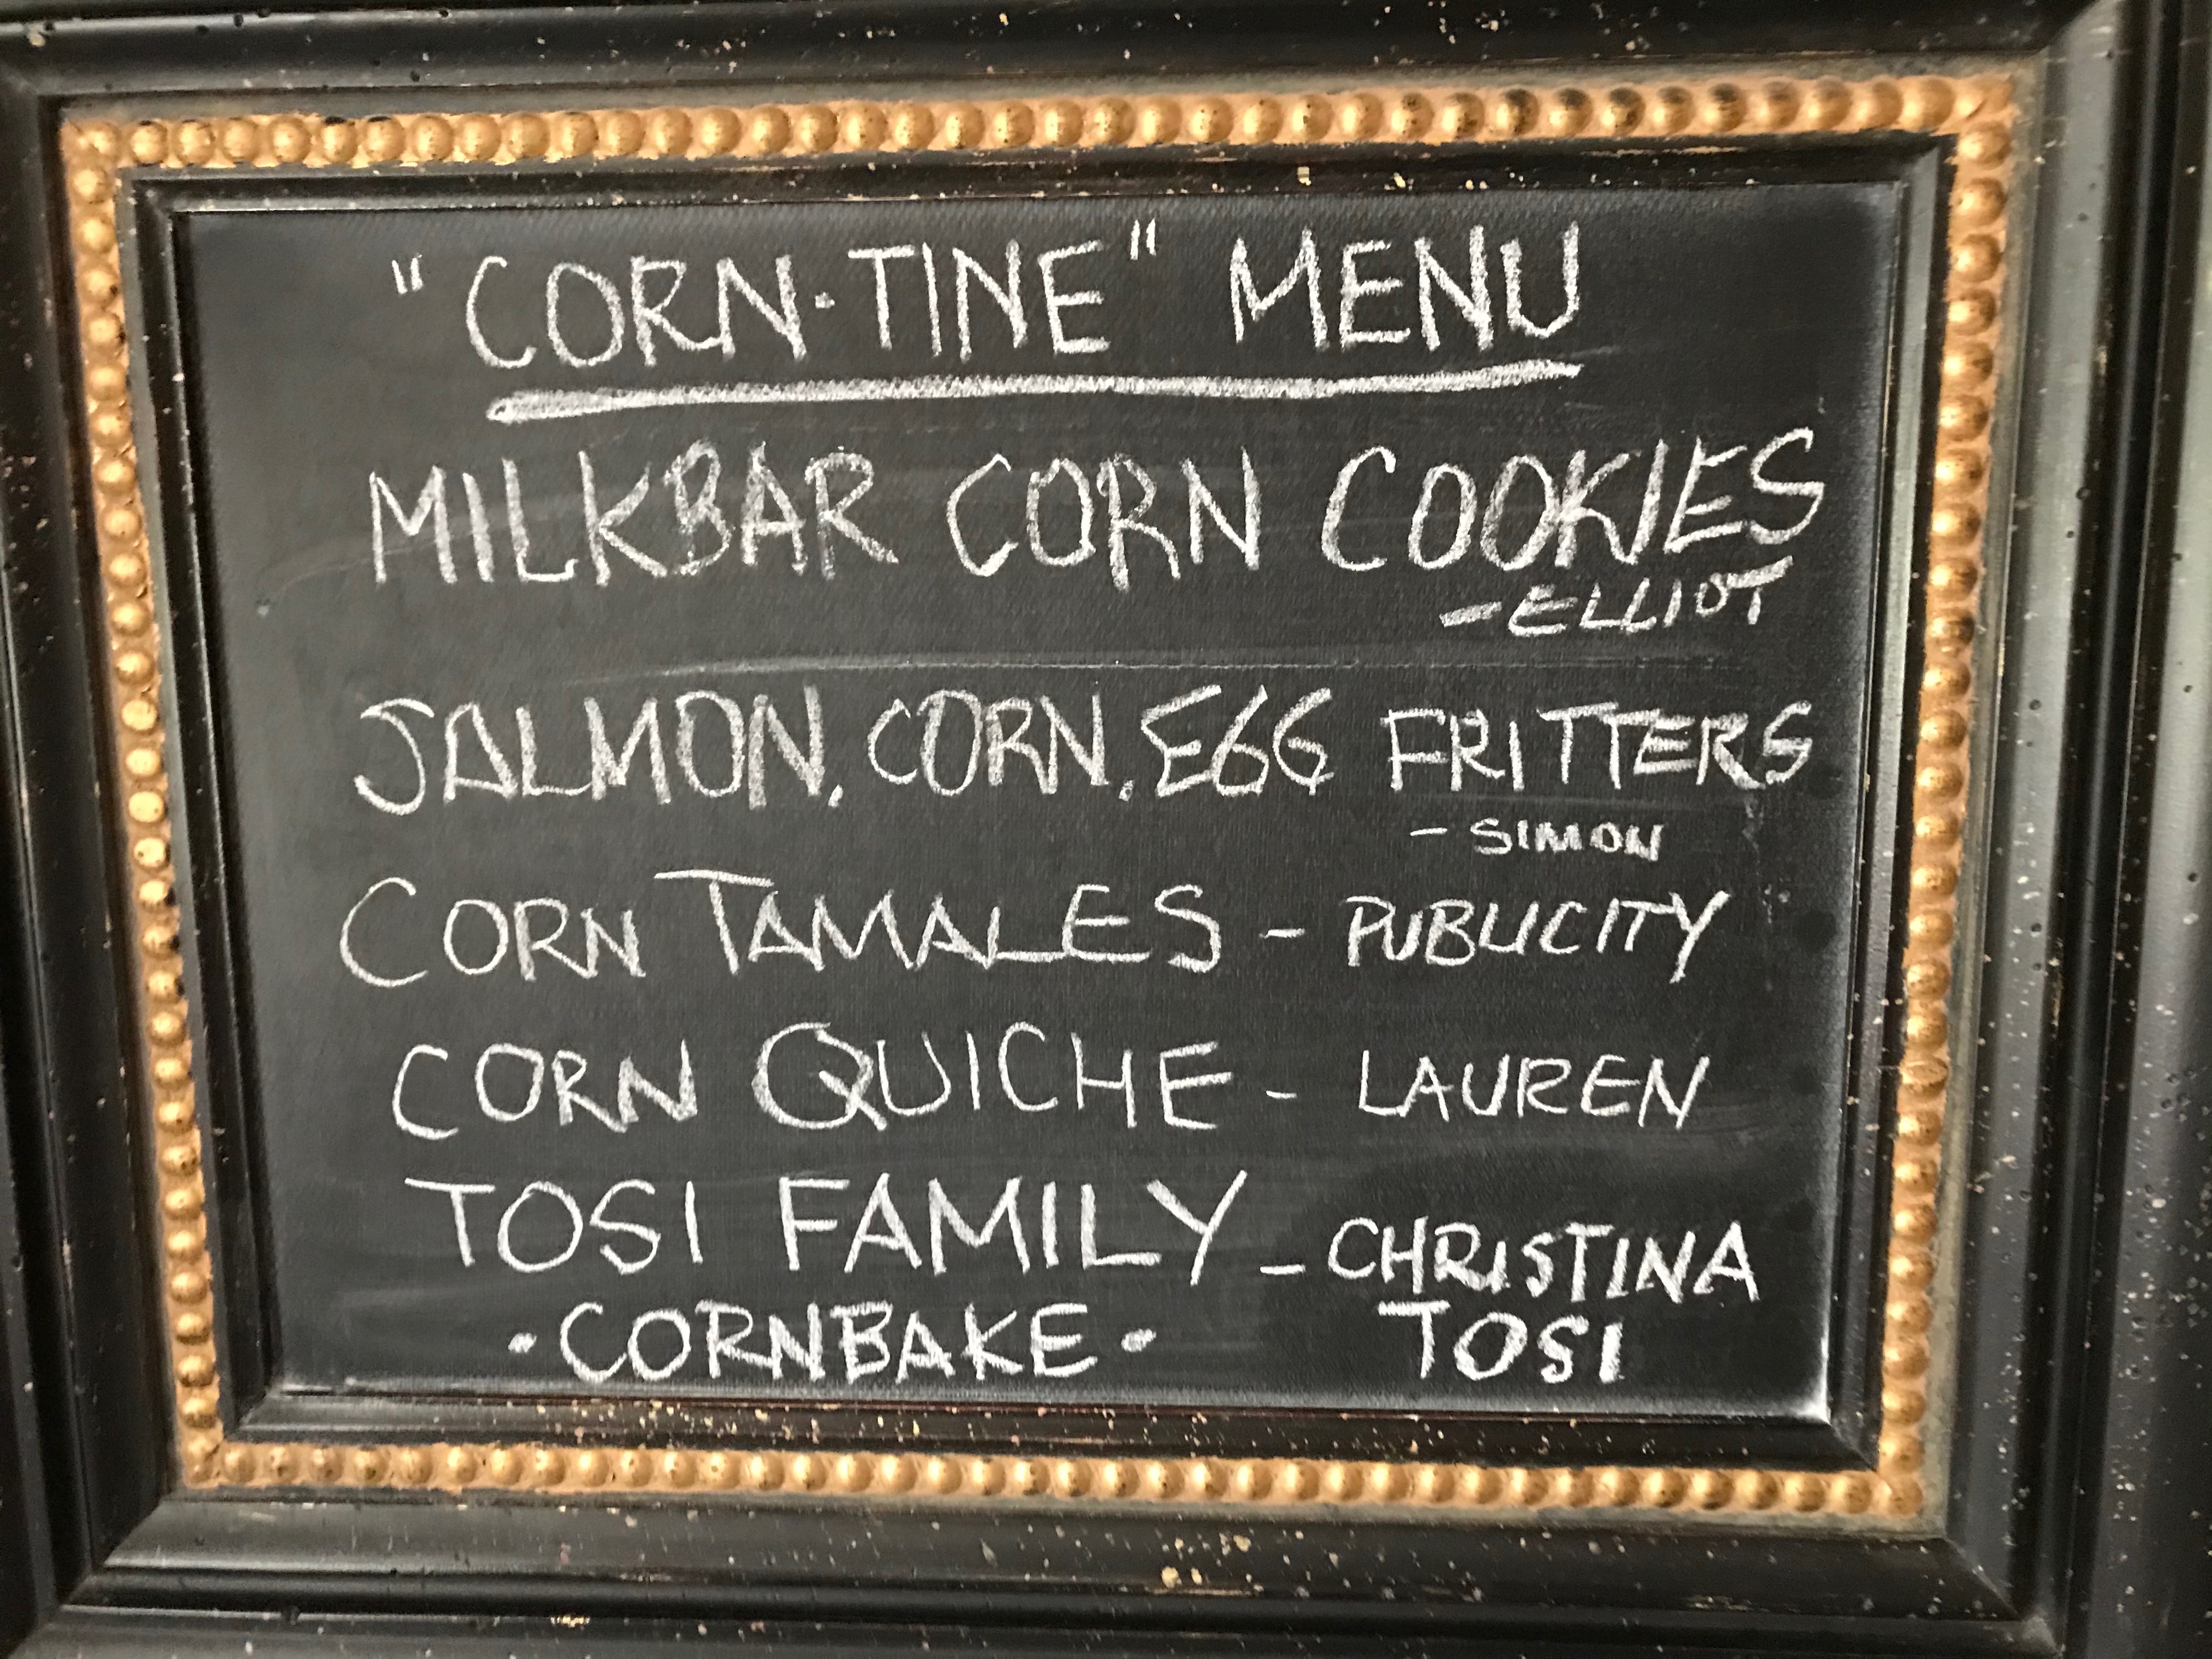 "CORN·TINE" MENU
MILKBAR CORN COOKIES
- ELLIOT
SALMON, CORN, EGG FRITTERS
- SIMON
CORN TAMALES - PUBLICITY
CORN QUICHE - LAUREN
TOSI FAMILY - CHRISTINA
·CORNBAKE· TOSI